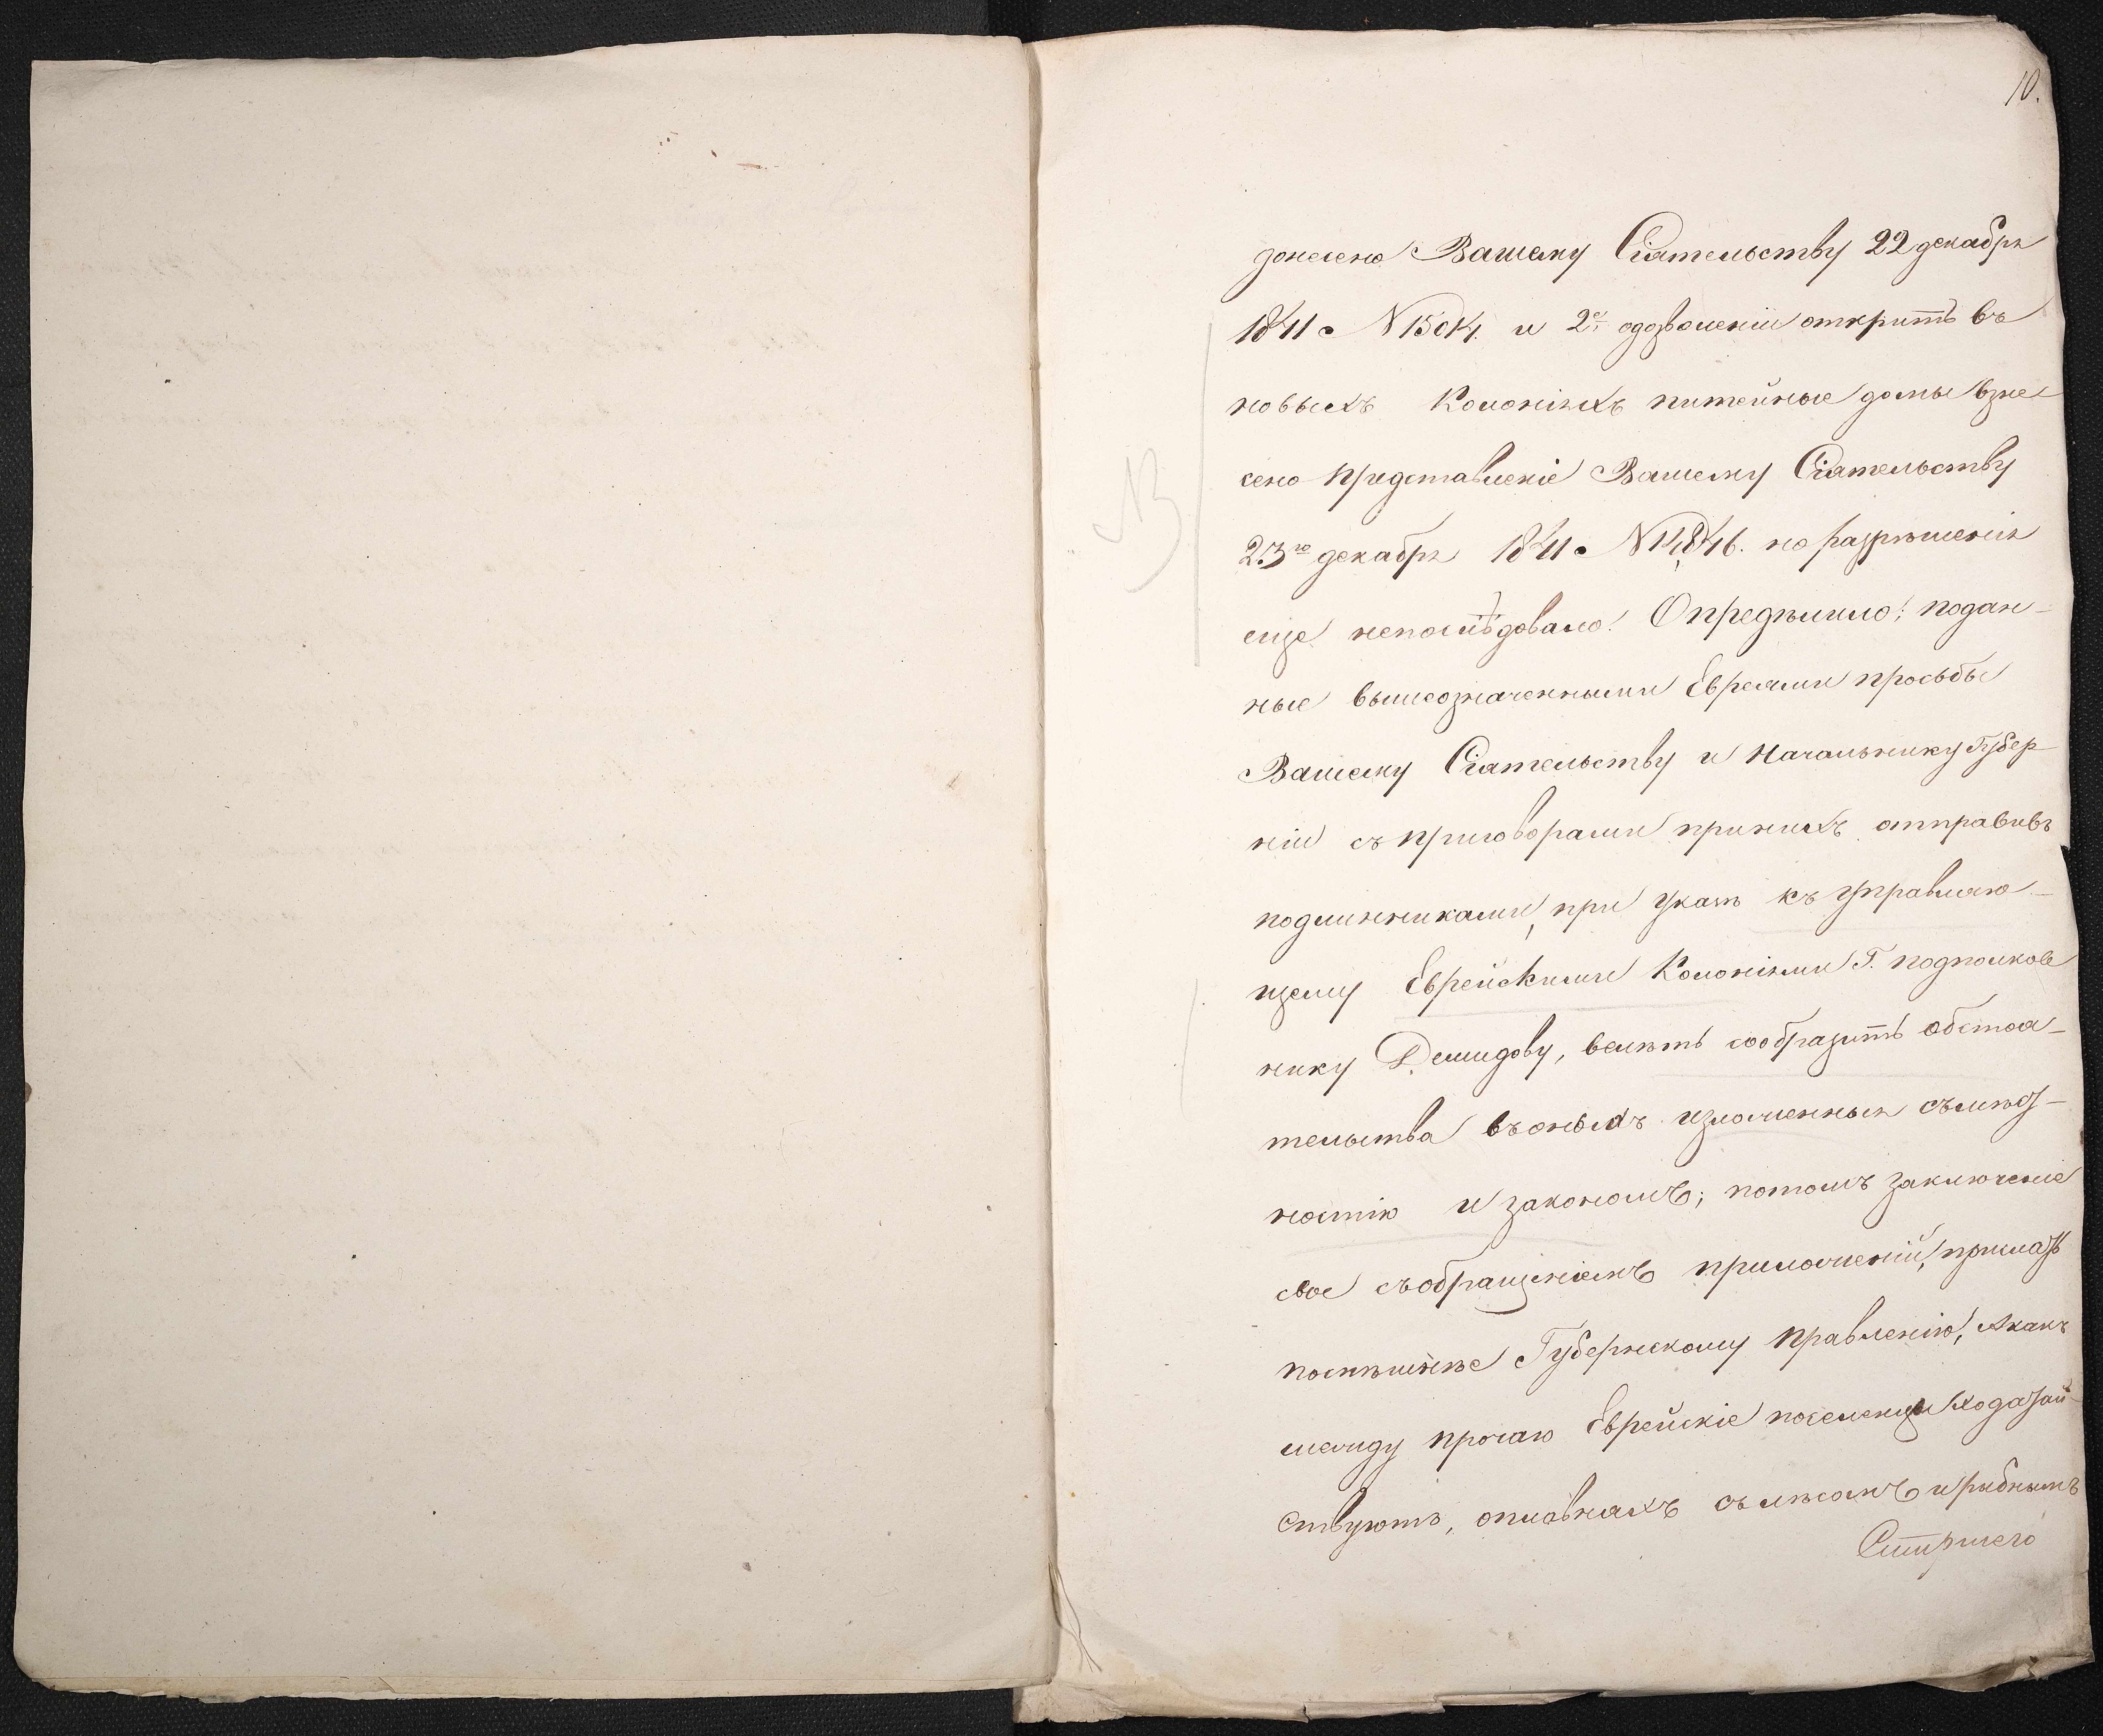 10.
донесено Вашему Сіятельству 22 декабря
1841 N 15014. и 2е одозволеніи открыть въ
новыхъ Колоніяхъ питейные домы взне
сено представленіе Вашему Сіятельству
23го декабря 1841 N 14,846. но разрѣшенія
еще непослѣдовало. Опредѣлило: подан-
ные вышеозначенными Евреями просьбы
Вашему Сіятельству и Начальнику Губер-
ніи съ приговорами принихъ отправивъ
подлинниками, при Указѣ къ Управляю-
щему Еврейскими Колоніями Г. подполков
нику Демидову, велѣть сообразить обстоя-
тельства въоныхъ изложенныя съмѣст-
ностію и закономъ; потомъ заключеніе
свое съобращеніемъ приложеній, прислать
поспѣшнѣе Губернскому правленію, Акакъ
между прочаю Еврейскіе поселенцы ходатай-
ствуютъ, оплавняхъ съ лѣсомъ и рыбнымъ